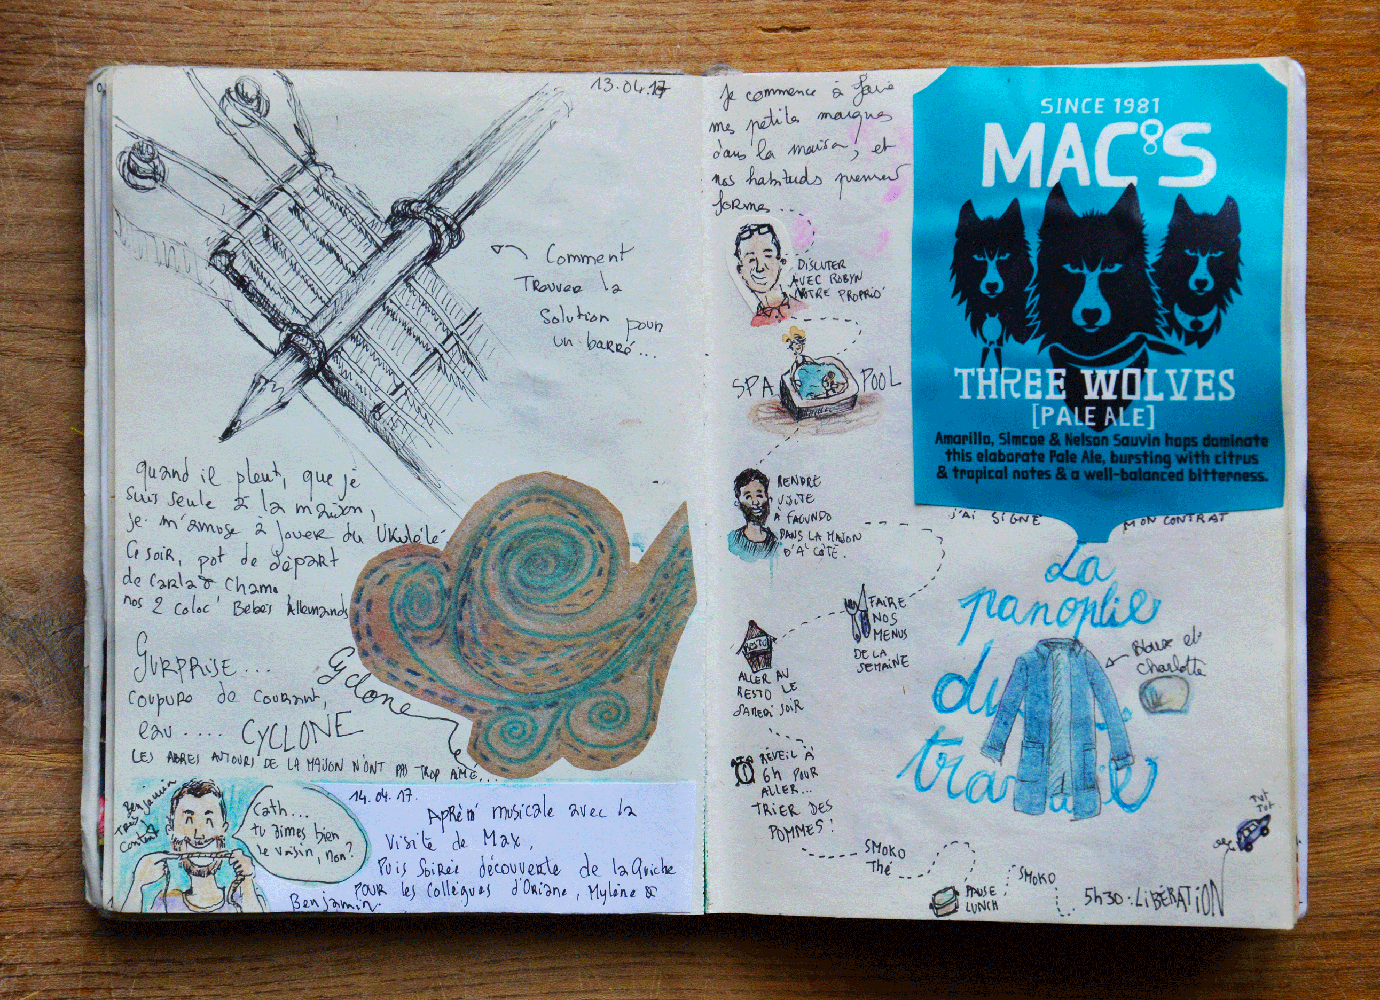 13.04.17
Comment
Trouver la
Solution pour
un barré...
quand il pleut, que je
suis seule à la maison,
je m'amuse à jouer du Ukulélé
Ce soir, pot de départ
de Carla & Cham
nos 2 coloc' Bébés Allemands
SURPRISE...
coupure de courant,
eau ..... CYCLONE
LES ABRES AUTOURS DE LA MAISON N'ONT PAS TROP AIMÉ...
Cyclone
Benjamin
Très
Content
Cath...
tu aimes bien
le voisin, non?
14.04.17.
Aprèm' musicale avec la
Visite de Max,
Puis Soirée découverte de la Quiche
POUR les Collègues d'Oriane, Mylène &
Benjamin.
Je commence à faire
mes petites marques
dans la maison, et
nos habituds prennent
formes...
DISCUTER
AVEC ROBYN
NOTRE PROPRIO'
SPA POOL
RENDRE
VISITE
À FACUNDO
DANS LA MAISON
D'A CÔTÉ.
FAIRE
NOS
MENUS
DE LA
SEMAINE
RESTO
ALLER AU
RESTO LE
SAMEDI SOIR
RÉVEIL À
6h POUR
ALLER...
TRIER DES
POMMES!
SMOKO
Thé
PAUSE
LUNCH
SMOKO
5h30: LIBÉRATION
TUT
TUT
SINCE 1981
MAC'S
THREE WOLVES
[PALE ALE]
Amarillo, Simcoe & Nelson Sauvin hops dominate
this elaborate Pale Ale, bursting with citrus
& tropical notes & a well-balanced bitterness.
J'AI SIGNÉ MON CONTRAT
La
panoplie
du
Blouse et
Charlotte